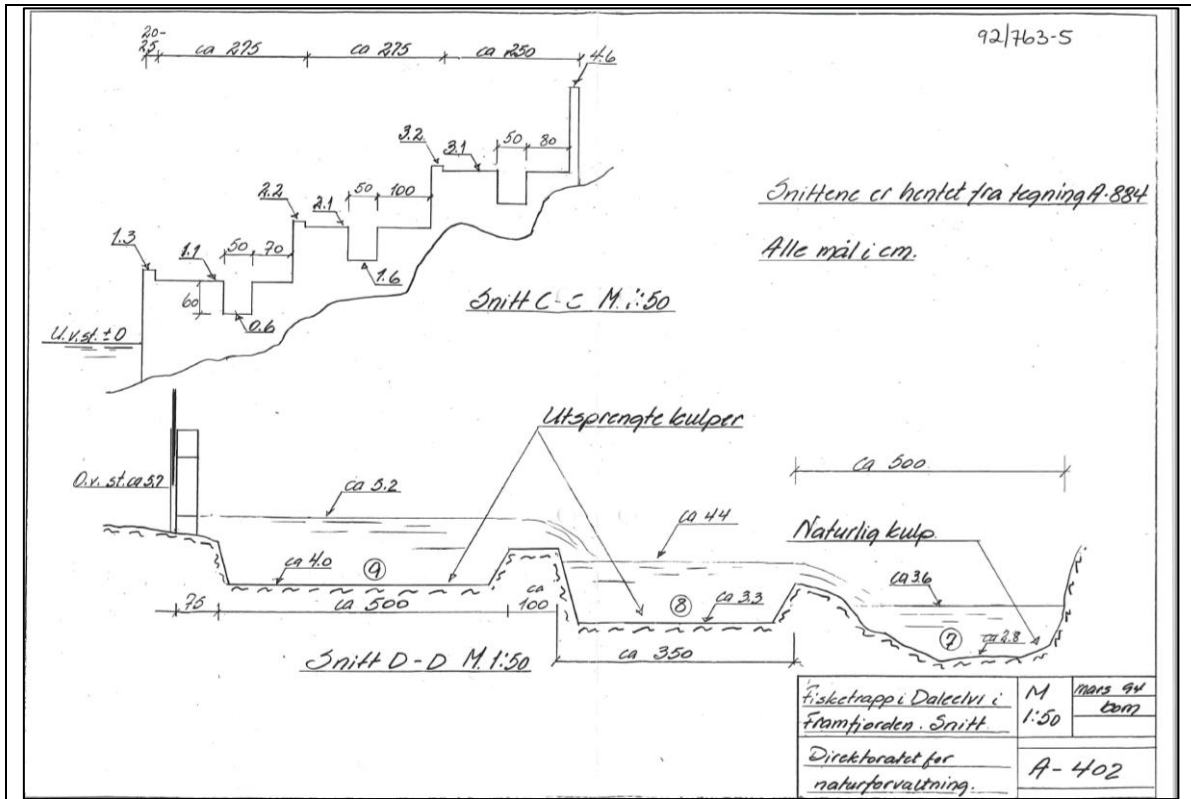 92/763-5
20-
25
ca 275
ca 275
ca 250
4.6
3.2
3.1
50
80
2.2
2.1
50
100
1.3
1.1
50
70
60
0.6
1.6
U.v.st. ±0
Snitt C-C M. 1:50
Snittene er hentet fra tegning A-884
Alle mål i cm.
Utsprengte kulper
O.v. st. ca 5.7
ca 5.2
ca 4.4
ca 500
Naturlig kulp
ca 4.0
9
ca 3.6
8
ca 3.3
7
ca 2.8
75
ca 500
ca
100
ca 350
Snitt D-D M. 1:50
Fisketrapp i Daleelvi i
Framfjorden. Snitt
M
1:50
mars 94
bom
Direktoratet for
naturforvaltning.
A-402